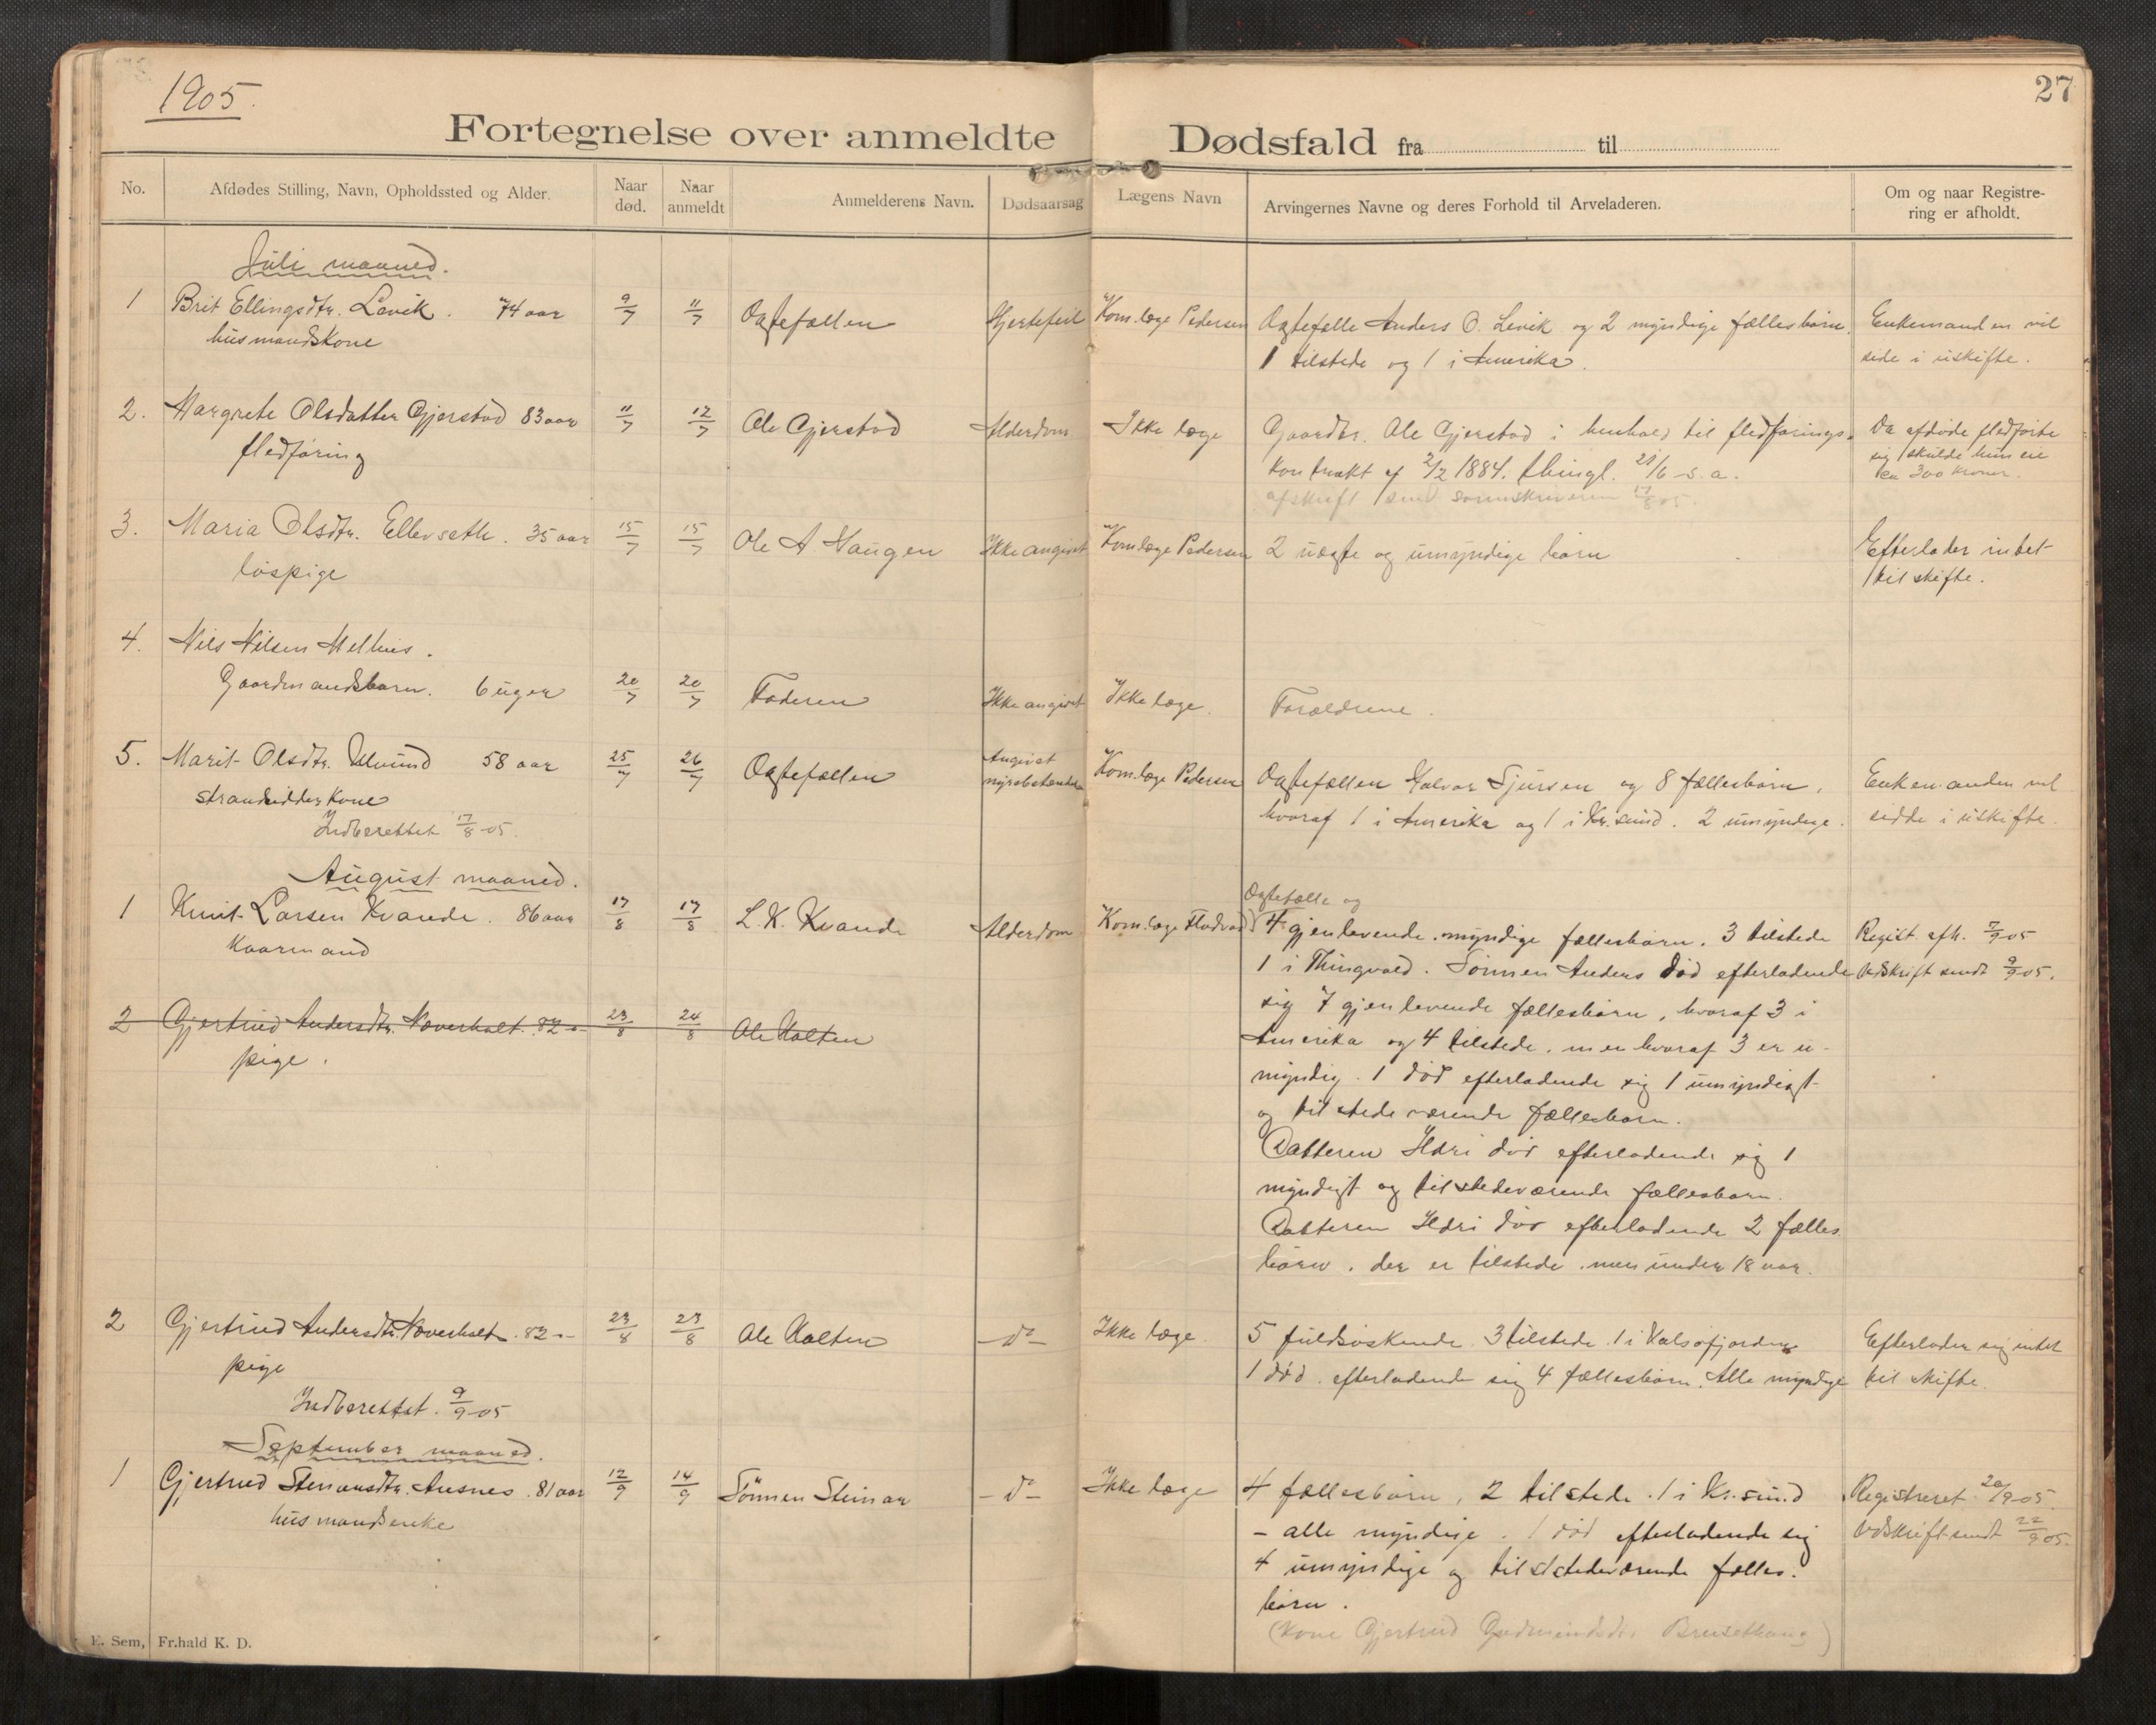 1905.
27
Fortegnelse over anmeldte Dødsfald fra til
No. Afdødes Stilling, Navn, Opholdssted og Alder. Naar død. Naar anmeldt Anmelderens Navn. Dødsaarsag Lægens Navn Arvingernes Navne og deres Forhold til Arveladeren. Om og naar Registrering er afholdt.
Juli maaned.
1 Brit Ellingsdtr. Løvik. 74 aar 9/7 11/7 Ægtefællen Hjertefeil Kom. læge Pedersen Ægtefælle Anders O. Løvik og 2 myndige fællesbørn. Enkemanden vil
husmandskone 1 tilstede og 1 i Amerika. side i uskifte.
2. Margrete Olsdatter Gjerstad 83 aar 11/7 12/7 Ole Gjerstad Alderdom Ikke læge Gaardbr. Ole Gjerstad i henhold til fledførings- Da afdøde fledførte
fledføring kontrakt af 2/2 1884. thingl. 21/6 s.a. sig skulde hun eie
ca 300 kroner.
afskrift sendt sorenskriveren 17/8 05.
3. Maria Olsdtr. Ellevseth. 35 aar 15/7 15/7 Ole A Haugen Ikke angivet Kom læge Pedersen 2 uægte og umyndige børn Efterlader intet
løspige til skifte.
4. Nils Nilsen Melhus.
Gaardmandsbarn. 6 uger 20/7 20/7 Faderen Ikke angivet Ikke læge. Forældrene.
5. Marit Olsdtr. Ulvund 58 aar 25/7 26/7 Ægtefællen Angivet Kom. læge Pedersen Ægtefællen Halvor Sjursen og 8 fællesbørn, Enkemanden vil
strandsidderkone hvoraf 1 i Amerika og 1 i Kr.sund. 2 umyndige. sidde i uskifte.
Indberettet 17/8 05.
August maaned.
Ægtefælle og
1 Knut Larsen Kvande. 86 aar 17/8 17/8 L. K. Kvande Alderdom Kom. læge Flødvad 4 gjenlevende myndige fællesbørn. 3 tilstede Regist. afh. 7/9 05
Kaarmand 1 i Thingvold. Sønnen Anders død efterladende Udskrift sendt 9/9 05.
sig 7 gjenlevende fællesbørn, hvoraf 3 i
2 Gjertrud Andersdtr. Nøverholt. 82 - 23/8 24/8 Ole Holten Amerika og 4 tilstede, men hvoraf 3 er u-
pige. myndig. 1 død efterladende sig 1 umyndigt
og tilstedeværende fællesbarn.
Datteren Ildri død efterladende sig 1
myndigt og tilstedeværende fællesbarn.
Datteren Ildri død efterladende 2 fælles
børn, der er tilstede men under 18 aar.
2 Gjertrud Andersdtr. Nøverholt. 82 - 23/8 23/8 Ole Holten - do - Ikke læge. 5 fuldsøskende. 3 tilstede. 1 i Valsøfjorden Efterlader sig intet
pige 1 død. efterladende sig 4 fællesbørn. Alle myndige til skifte.
Indberettet. 9/9 05
September maaned.
1 Gjertrud Stenarsdtr. Aresnes. 81 aar 12/9 14/9 Sønnen Steinar - do - Ikke læge 4 fællesbørn, 2 tilstede. 1 i Kr.sund Registreret 20/9 05
husmandsenke - alle myndige. 1 død efterladende sig Udskrift sendt 22/9 05.
4 umyndige og tilstedeværende fælles.
børn.
(kone Gjertrud Gudmundsdtr.
E. Sem, Fr.hald K. D.